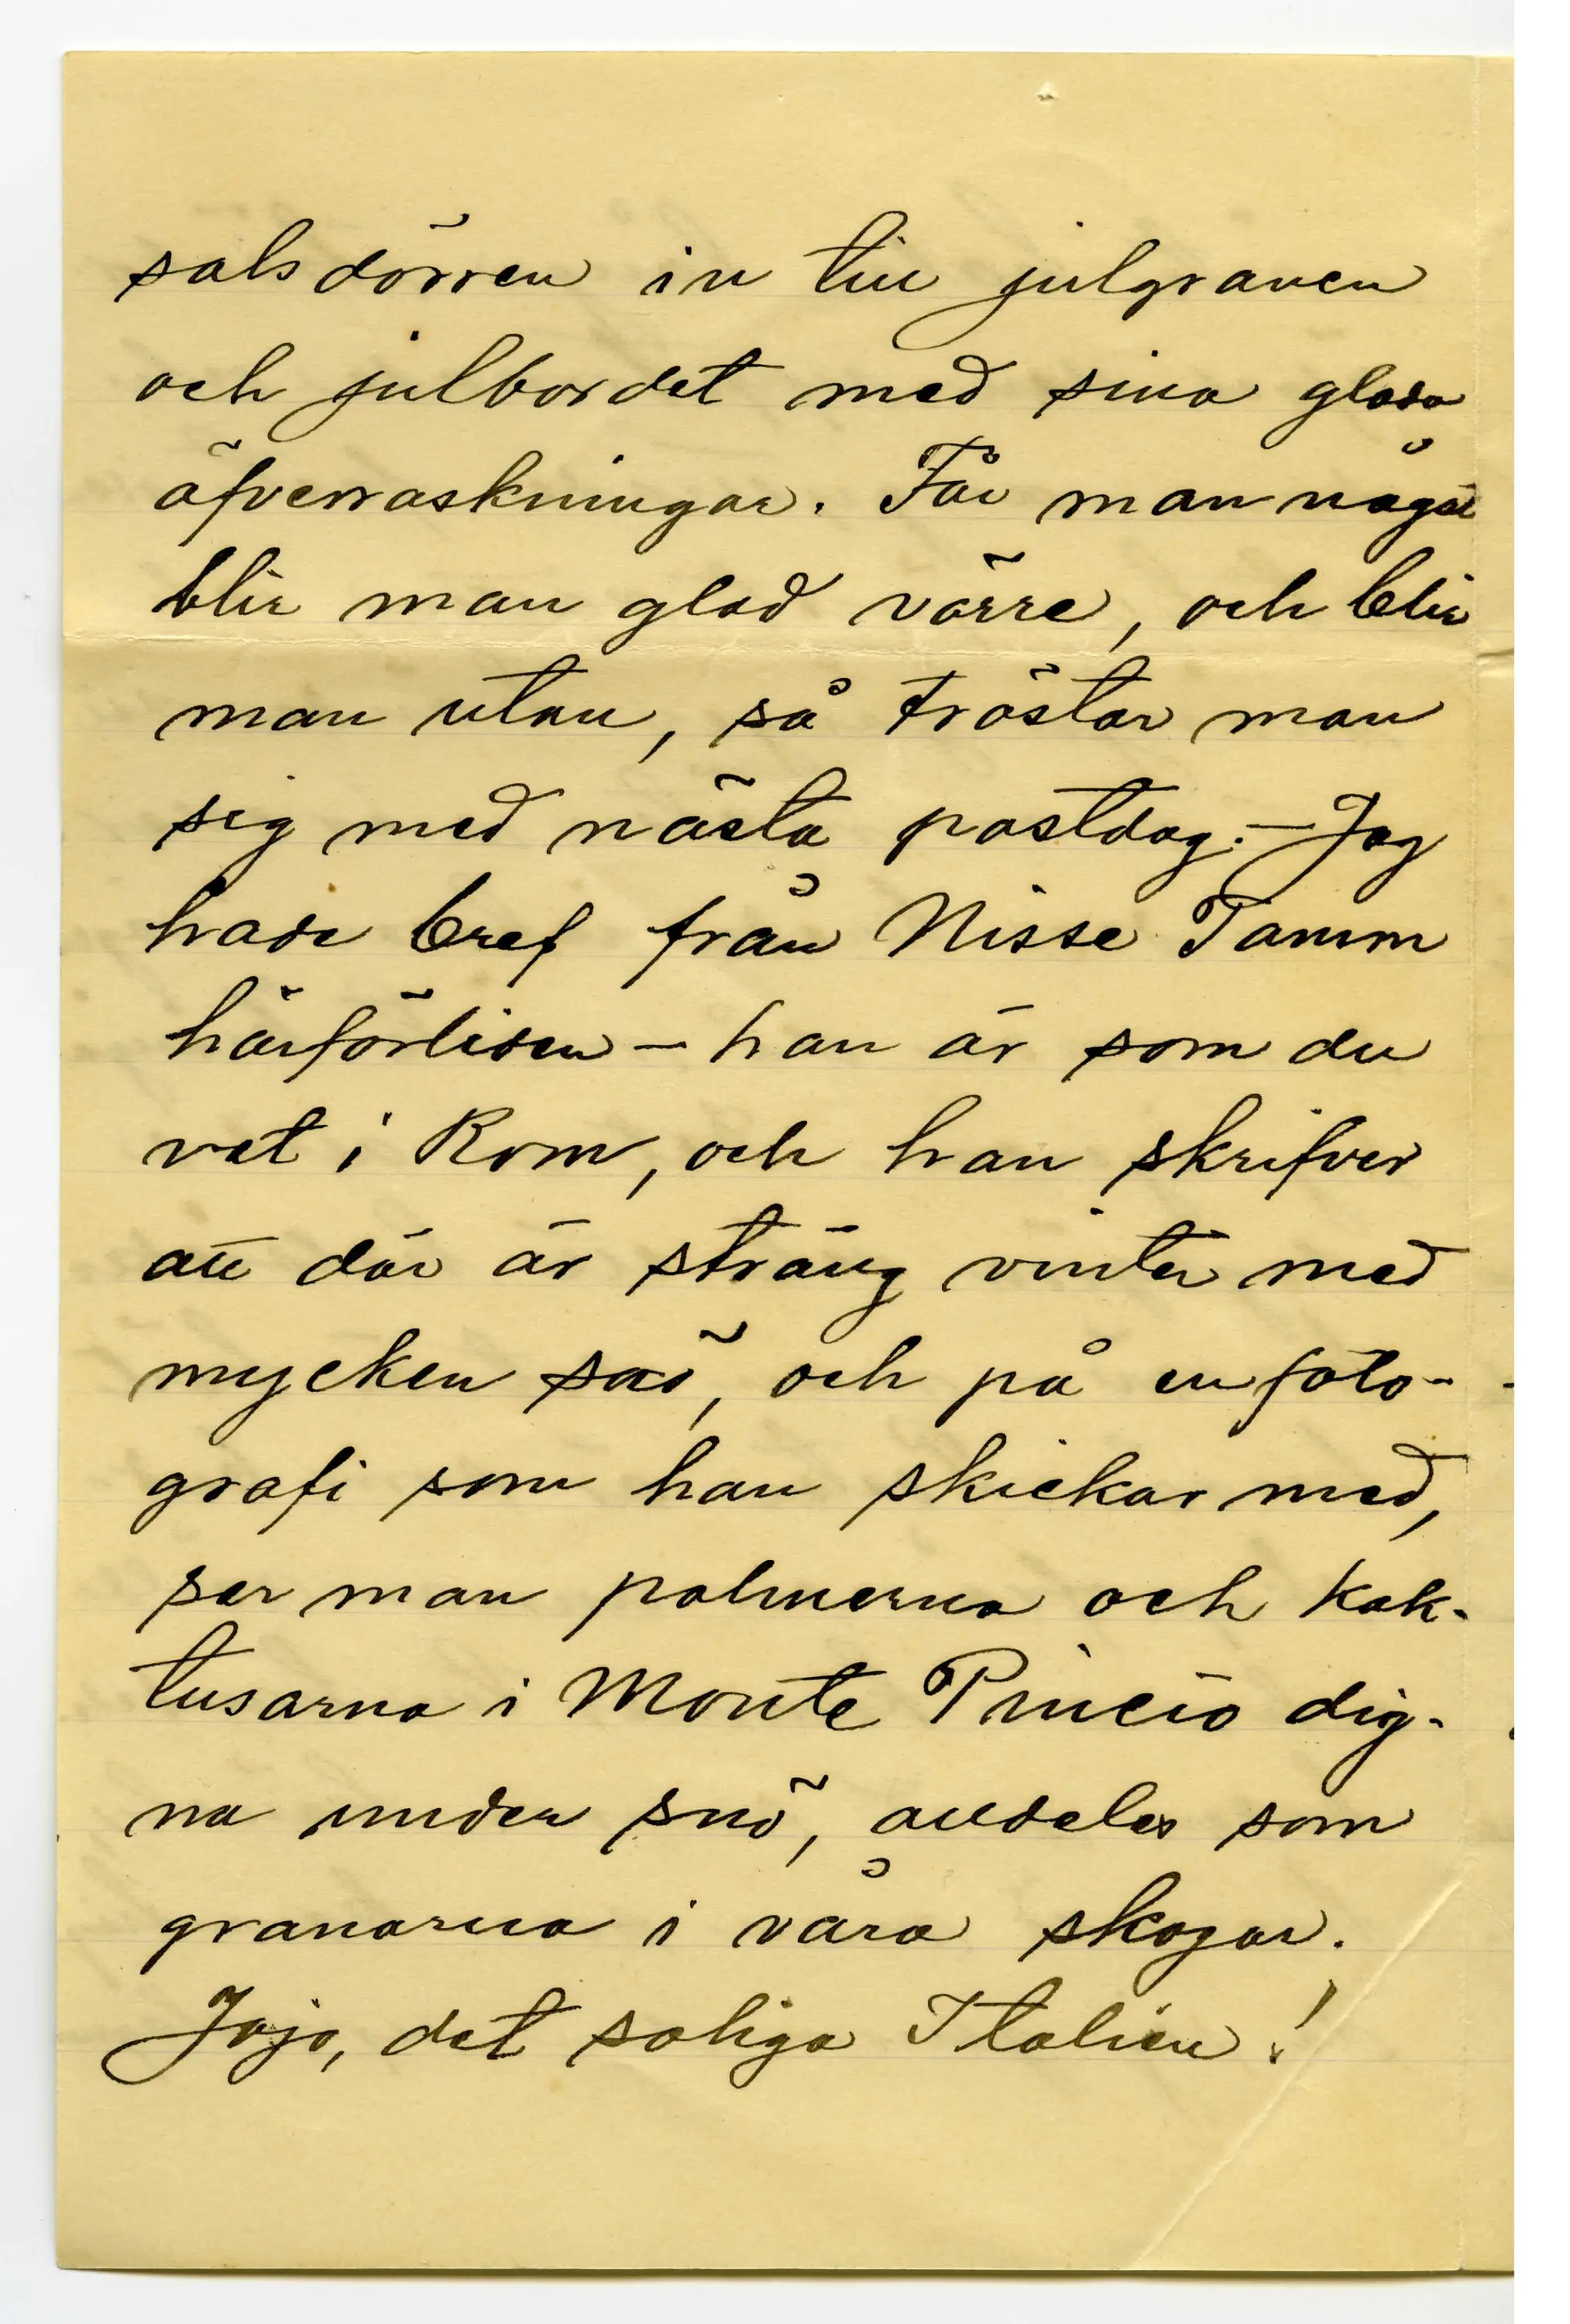 salsdörren in till julgranen
och julbordet med sina glada
öfverraskningar. Får man något
blir man glad värre, och blir
man utan, så tröstar man
sig med nästa postdag. – Jag
hade bref från Nisse Tamm
härförliden – han är som du
vet i Rom, och han skrifver
att där är sträng vinter med
mycken snö, och på en foto-
grafi som han skickar med,
ser man palmerna och kak-
tusarna i Monte Pincio dig-
na under snö, alldeles som
granarna i våra skogar.
Jojo, det soliga Italien!